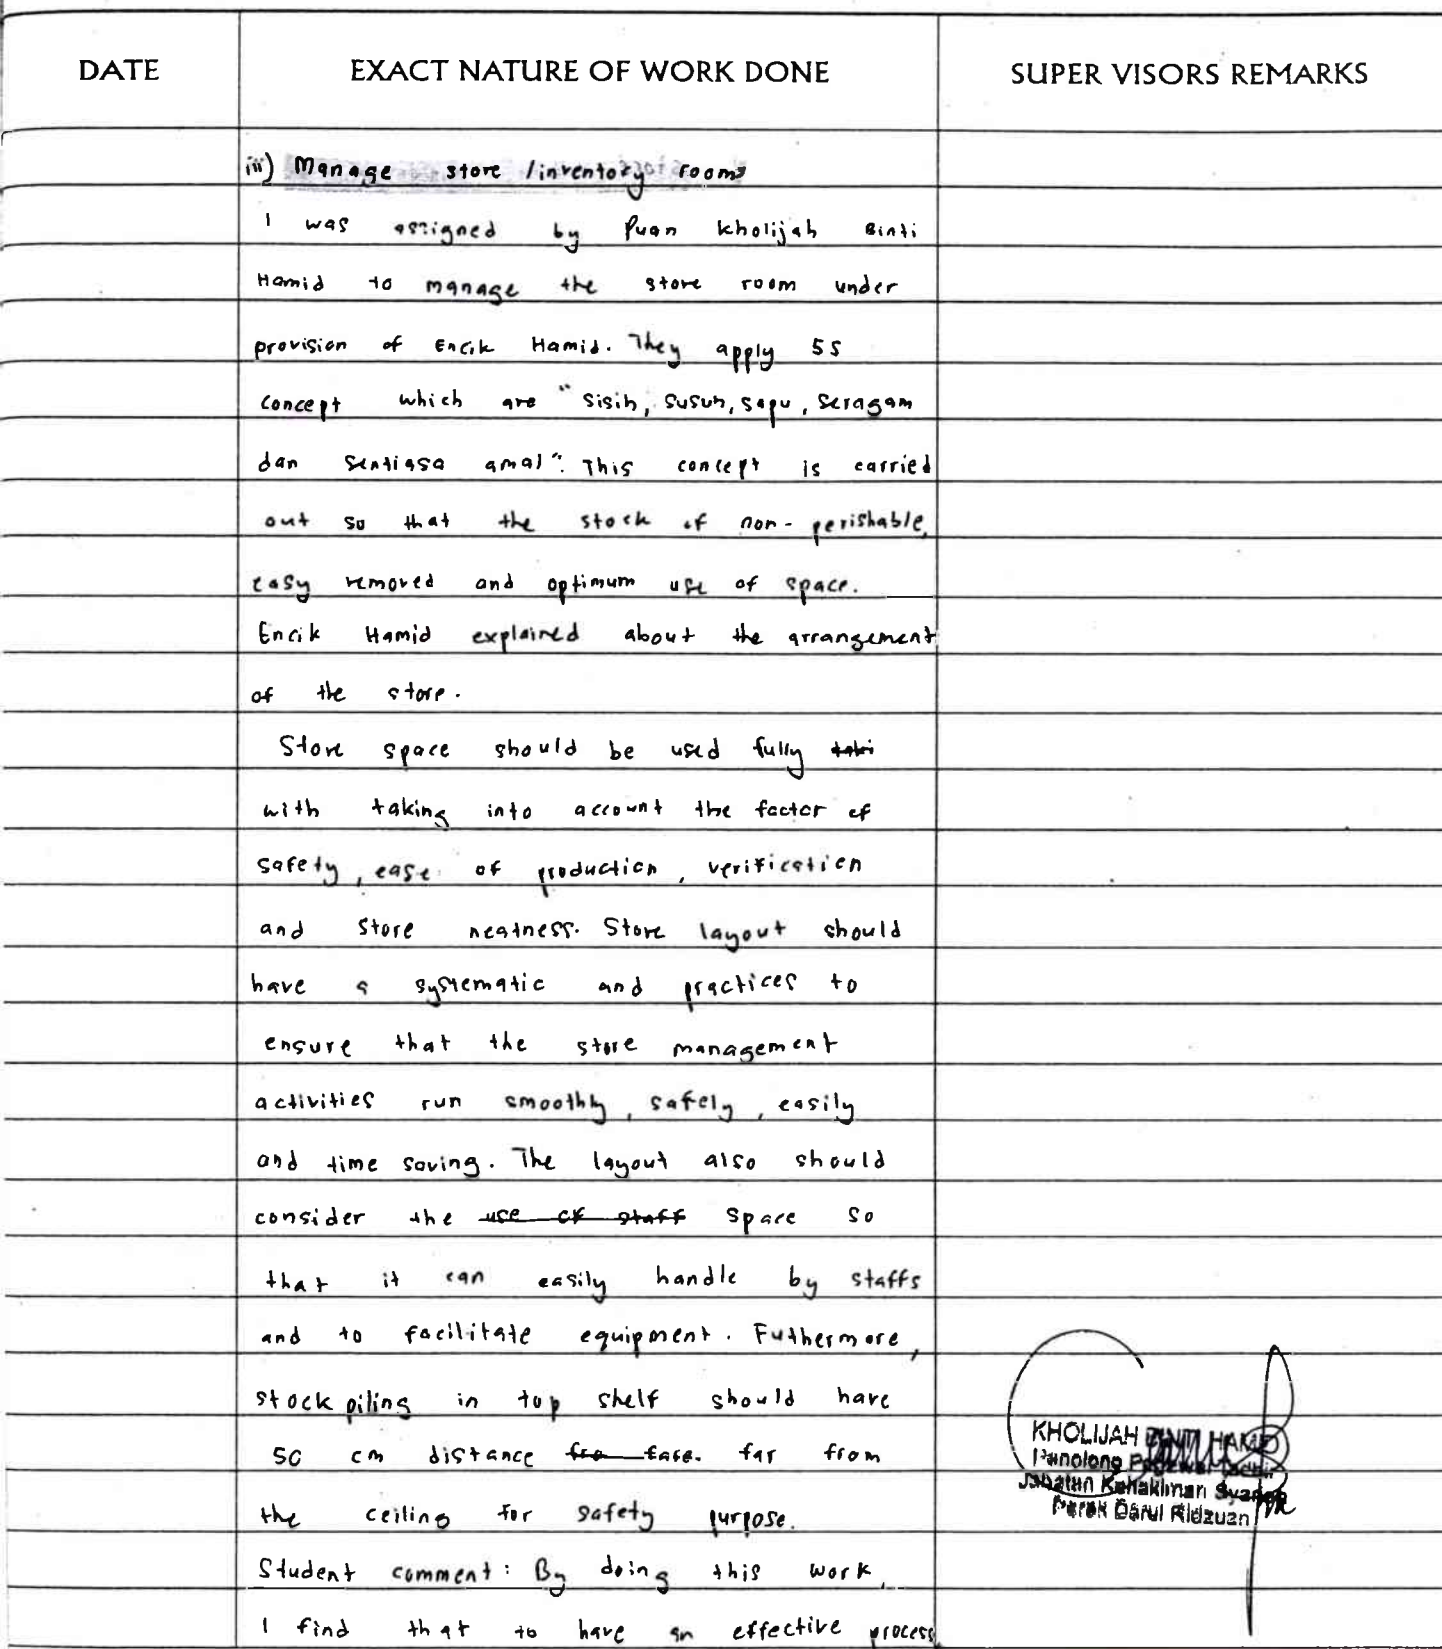 DATE
EXACT NATURE OF WORK DONE
SUPER VISORS REMARKS
iii) Manage store /inventory rooms
I was assigned by Puan Kholijah Binti
Hamid to manage the store room under
provision of Encik Hamid. They apply 5S
concept which are "Sisih, Susun, Sapu, Seragam
dan Sentiasa amal". This concept is carried
out so that the stock of non-perishable,
easy removed and optimum use of space.
Encik Hamid explained about the arrangement
of the store.
Store space should be used fully
with taking into account the factor of
safety, ease of production, verification
and store neatness. Store layout should
have a systematic and practices to
ensure that the store management
activities run smoothly, safely, easily
and time saving. The layout also should
consider the use of staff space so
that it can easily handle by staffs
and to facilitate equipment. Futhermore,
stock piling in top shelf should have
50 cm distance far from
the ceiling for safety purpose.
Student comment: By doing this work,
I find that to have an effective process
KHOLIJAH BINTI HAMID
Penolong Pegawai
Jabatan Kehakiman Syariah
Perak Darul Ridzuan